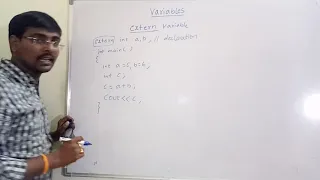 Variables
extern Variable
extern int a,b; // declaration
int main( )
{
int a=5, b=6;
int c;
c = a+b;
cout<<c;
}